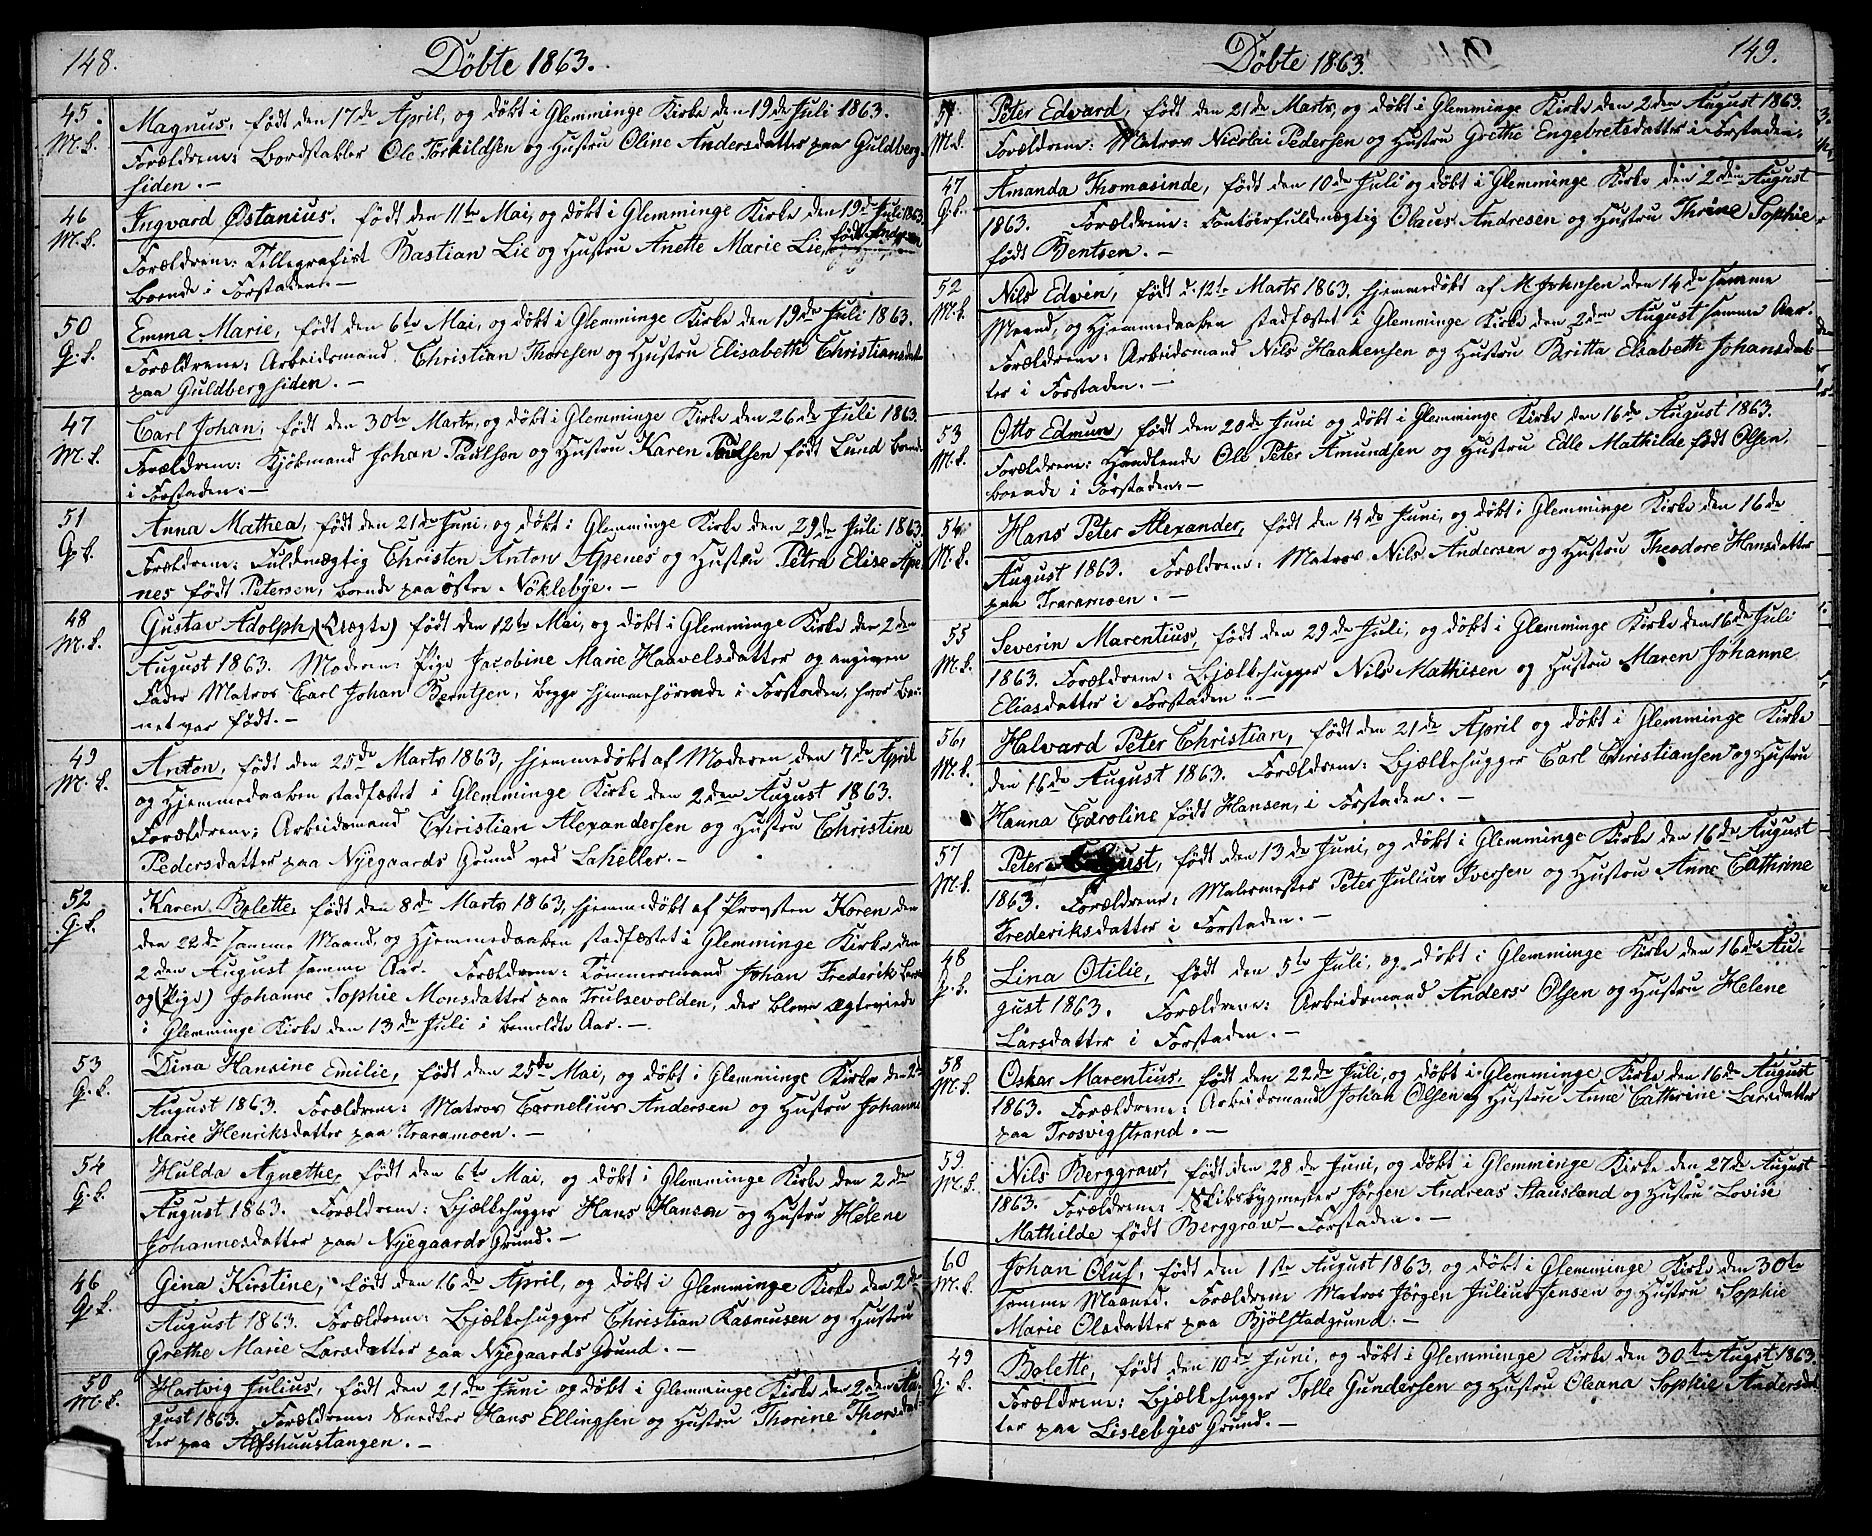 148.
Döbte 1863.
45. Magnus, født den 17de April, og döbt i Glemminge Kirke den 19de Juli 1863.
M.k. Forældrene: Bordstabler Ole Torkildsen og Hustru Oline Andersdatter paa Guldberg-
siden. —
46 Ingvard Østanius, født den 11te Mai, og döbt i Glemminge Kirke den 19de Juli 1863
M.k. Forældrene: Tellegrafist Bastian Lie og Hustru Anette Marie Lie, født Andersen
boende i Forstaden. —
50 Emma Marie, født den 6te Mai, og döbt i Glemminge Kirke den 19de Juli 1863.
G.k. Forældrene: Arbeidsmand Christian Thoresen og Hustru Elisabeth Christiansdatter
paa Guldbergsiden. —
47 Carl Johan, født den 30te Marts, og döbt i Glemminge Kirke den 26de Juli 1863
M.k. Forældrene: Kjöbmand Johan Paulsen og Hustru Karen Paulsen født Lund boende
i Forstaden. —
51 Anna Mathea, født den 21de Juni, og döbt i Glemminge Kirke den 29de Juli 1863
G.k. Forældrene: Fuldmægtig Christen Anton Apenes og Hustru Petra Elise Ape-
nes født Petersen, boende paa östre Nöklebye. —
48 Gustav Adolph, (Uægte) født den 12te Mai, og döbt i Glemminge Kirke den 2den
M.k. August 1863. Moderen: Pige Jacobine Marie Haavelsdatter og angiven
Fader Matros Carl Johan Berntsen, begge hjemmehörende i Forstaden, hvor Bar-
net var født. —
49 Anton, født den 25de Marts 1863, hjemmedöbt af Moderen den 7de April
M.k. og Hjemmedaaben stadfæstet i Glemminge Kirke den 2den August 1863.
Forældrene: Arbeidsmand Christian Alexandersen og Hustru Christine
Pedersdatter paa Nyegaards Grund ved Laheller. —
52 Karen Bolette, født den 8de Marts 1863, hjemmedöbt af Provsten Koren den
G.k. den 22de samme Maand, og Hjemmedaaben stadfæstet i Glemminge Kirke den
2den August samme Aar. Forældrene: Tömmermand Johan Frederik
og (Pige) Johanne Sophie Monsdatter paa Trulsevolden, der bleve ægteviede
i Glemminge Kirke den 13de Juli i bemeldte Aar. —
53 Dina Hansine Emilie, født den 25de Mai, og döbt i Glemminge Kirke den 2de
G.k. August 1863. Forældrene: Matros Cornelius Andersen og Hustru Johanne
Marie Henriksdatter paa Traramoen. —
54 Hulda Agnethe, født den 6te Mai, og döbt i Glemminge Kirke den 2den
G.k. August 1863. Forældrene: Bjælkehugger Hans Hansen og Hustru Helene
Johannesdatter paa Nyegaards Grund. —
46 Gina Kirstine, født den 16de April, og döbt i Glemminge Kirke den 2den
G.k. August 1863. Forældrene: Bjælkehugger Christian Rasmusen og Hustru
Grethe Marie Larsdatter paa Nyegaards Grund. —
50 Hartvig Julius, født den 21de Juni og döbt i Glemminge Kirke den 2den Au-
M.k. gust 1863. Forældrene: Snedker Hans Ellingsen og Hustru Thorine Thorsdat-
ter paa Alfshuustangen. —
Döbte 1863.
149.
51 Peter Edvard, født den 21de Marts, og döbt i Glemminge Kirke den 2den August 1863.
M.k. Forældrene: Matros Nicolai Pedersen og Hustru Grethe Engebretsdatter i Forstaden.
47 Amanda Thomasinde, født den 10de Juli og döbt i Glemminge Kirke den 2den August
G.k. 1863. Forældrene: Contoirfuldmægtig Olaus Andresen og Hustru Thrine Sophie
født Bentsen. —
52 Nils Edvin, født d. 12te Marts 1863, hjemmedöbt af M. Johnsen den 14de samme
M.k. Maand, og Hjemmedaaben stadfæstet i Glemminge Kirke den 2den August samme Aar.
Forældrene: Arbeidsmand Nils Haakensen og Hustru Britta Elsabeth Johansdat-
ter i Forstaden. —
53 Otto Edmun, født den 20de Juni og döbt i Glemminge Kirke den 16de August 1863.
M.k. Forældrene: Handlende Ole Peter Amundsen og Hustru Edle Mathilde født Olsen,
boende i Forstaden. —
54 Hans Peter Alexander, født den 14de Juni, og döbt i Glemminge Kirke den 16de
M.k. August 1863. Forældrene: Matros Nils Andersen og Hustru Theodore Hansdatter
paa Traramoen. —
55 Severin Marentius, født den 29de Juli, og döbt i Glemminge Kirke den 16de Juli
M.k. 1863. Forældrene: Bjælkehugger Nils Mathisen og Hustru Maren Johanne
Eliasdatter i Forstaden. —
56, Halvard Peter Christian, født den 21de April og döbt i Glemminge Kirke
M.k. den 16de August 1863. Forældrene: Bjælkehugger Carl Christiansen og Hustru
Hanna Caroline født Hansen, i Forstaden. —
57 Peter August, født den 13de Juni, og döbt i Glemminge Kirke den 16de August
M.k. 1863. Forældrene: Malermester Peter Julius Iversen og Hustru Anne Cathrine
Frederiksdatter i Forstaden. —
48 Lina Otilie, født den 5te Juli, og döbt i Glemminge Kirke den 16de Au-
G.k. gust 1863. Forældrene: Arbeidsmand Anders Olsen og Hustru Helene
Larsdatter i Forstaden. —
58 Oskar Marentius, født den 22de Juli, og döbt i Glemminge Kirke den 16de August
M.k. 1863. Forældrene: Arbeidsmand Johan Olsen og Hustru Anne Cathrine Larsdatter
paa Trosvigstrand. —
59 Nils Berggraw, født den 28de Juni, og döbt i Glemminge Kirke den 27de August
M.k. 1863. Forældrene: Skibsbygmester Jörgen Andreas Stausland og Hustru Lovise
Mathilde født Berggraw — Forstaden. —
60 Johan Oluf, født den 1ste August 1863, og döbt i Glemminge Kirke den 30te
M.k. samme Maaned. Forældrene Matros Jörgen Julius Jensen og Hustru Sophie
Marie Olsdatter paa Bjölstadgrund. —
49 Bolette, født den 10de Juni, og döbt i Glemminge Kirke den 30te August 1863.
G.k. Forældrene: Bjælkehugger Tolle Gundersen og Hustru Oleana Sophie Andersdat-
ter paa Lislebyes Grund. —